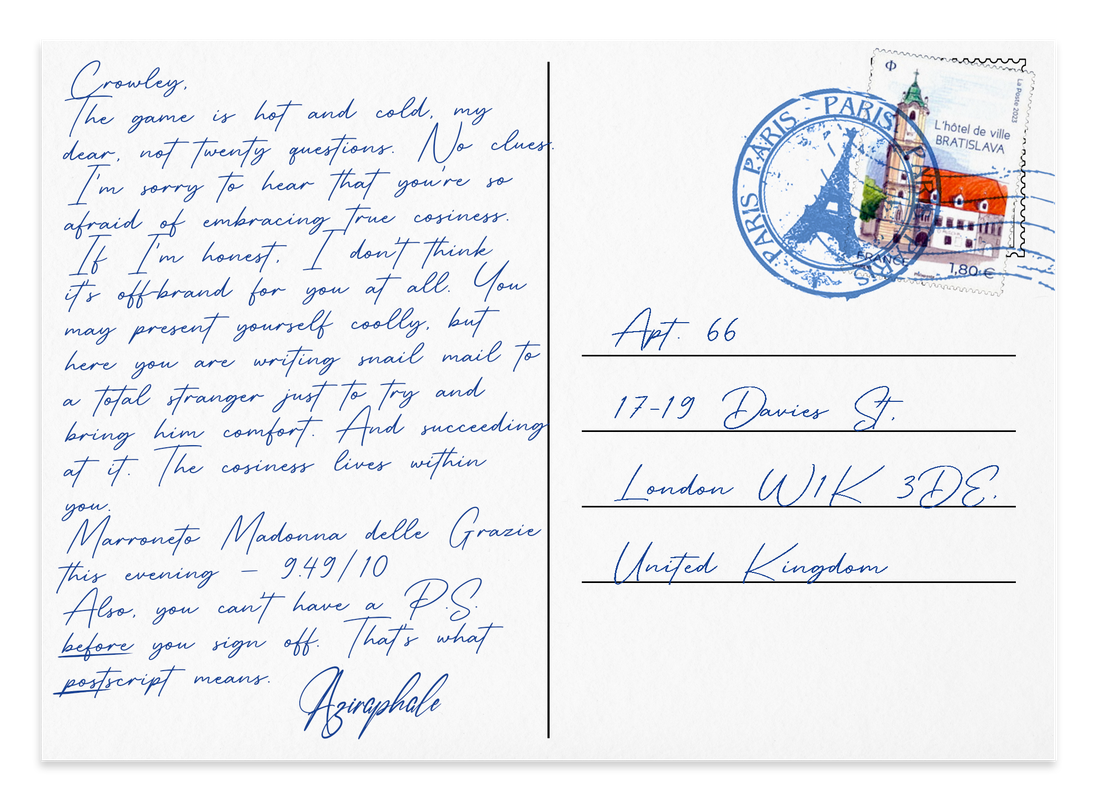 Crowley,
The game is hot and cold, my
dear, not twenty questions. No clues.
I'm sorry to hear that you're so
afraid of embracing true cosiness.
If I'm honest, I don't think
it's off-brand for you at all. You
may present yourself coolly, but
here you are writing snail mail to
a total stranger just to try and
bring him comfort. And succeeding
at it. The cosiness lives within
you.
Marroneto Madonna delle Grazie
this evening – 9.49/10
Also, you can't have a P.S.
before you sign off. That's what
postscript means.
Aziraphale
Φ
La Poste 2023
L'hôtel de ville
BRATISLAVA
FRANCE
1,80 €
PARIS - PARIS - PARIS - PARIS - PARIS
Apt. 66
17-19 Davies St.
London W1K 3DE.
United Kingdom